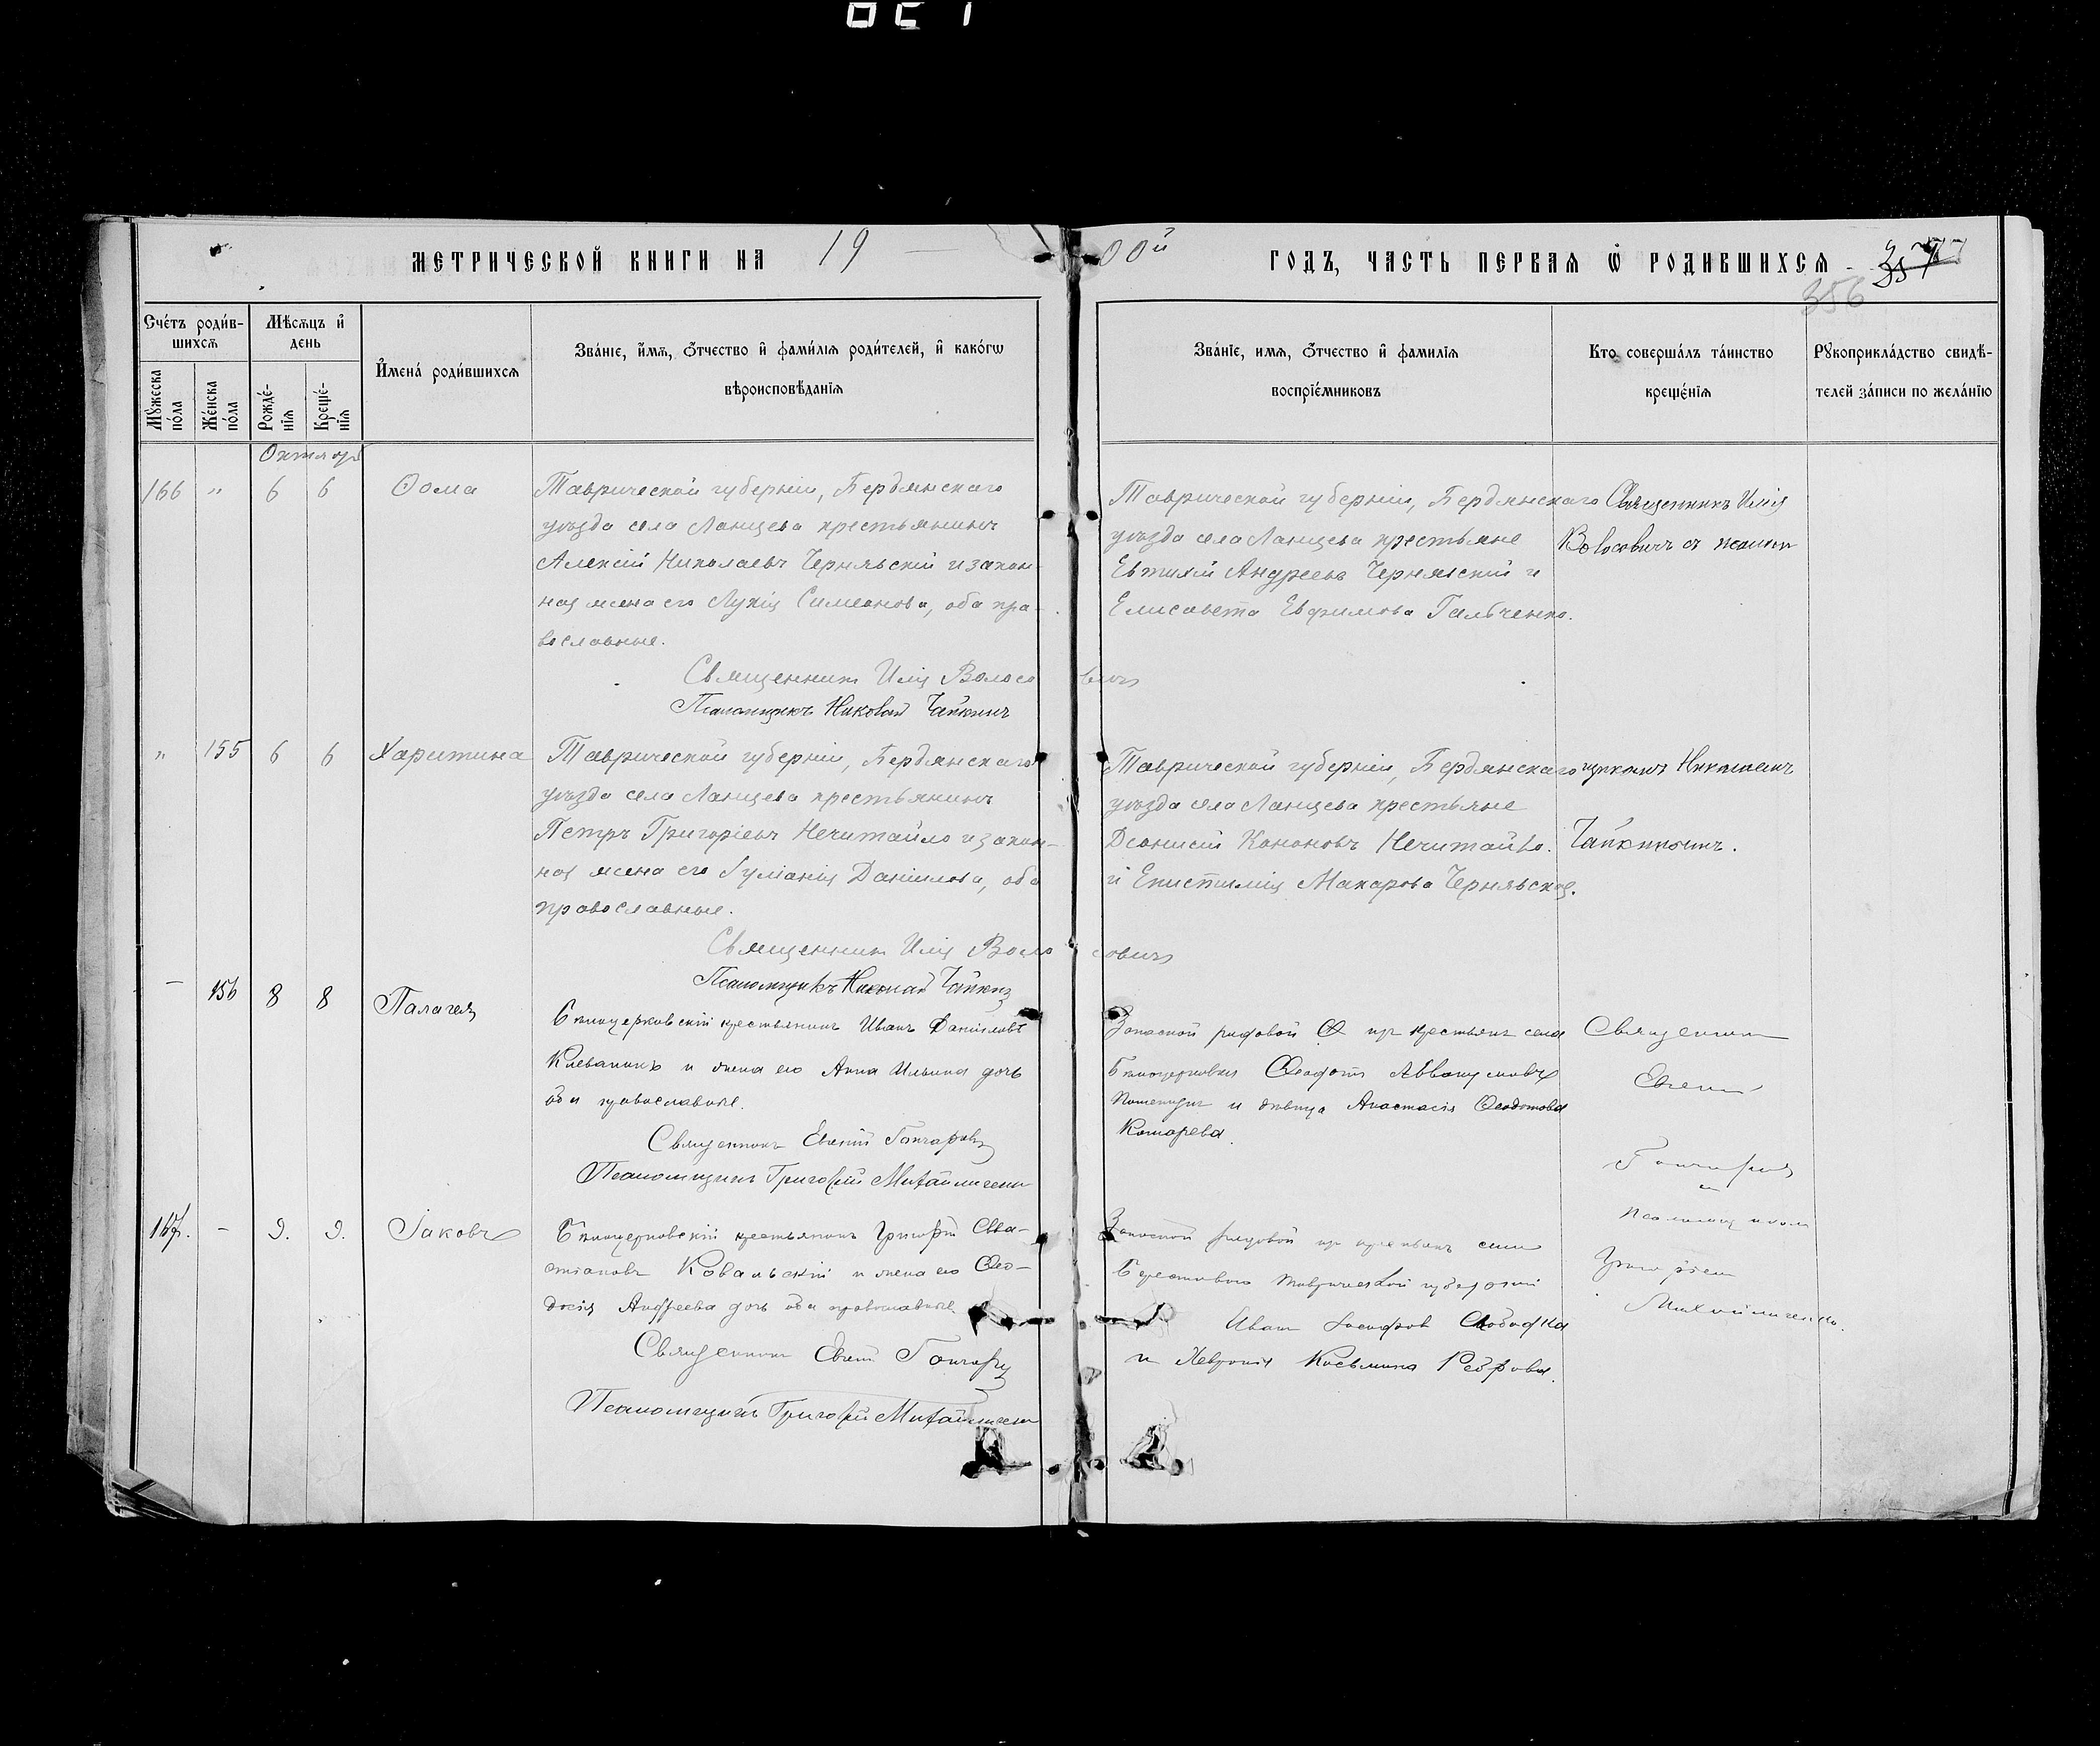 МЕТРИЧЕСКОЙ КНИГИ НА 19
00й ГОДЪ, ЧАСТЬ ПЕРВАЯ Ѡ РОДИВШИХСЯ
356
Счéтъ роди́вшихся
Мѣсяцъ и҆ день
Мꙋжеска по́ла
Же́нска по́ла
Рожде́нїя
Креще́нїя
И҆мена̀ роди́вшихся
Зва́нїе, и҆́мя, Ѻ҆́тчество и҆ фами́лїя роди́телей, и҆ како́гѡ
вѣроисповѣданїя
Зва́нїе, имя, Ѻ҆́тчество и҆ фамилїя
воспрїе́мниковъ
Кто̀ соверша́лъ та́инство
креще́нїя
Рꙋкоприкла́дство свидѣ-
телей за́писи по жела́нїю
Октябрь
166 " 6 6 Ѳома
Таврической губерніи, Бердянскаго
уѣзда села Ланцева крестьянинъ
Алексій Николаевъ Чернявскій и закон
ная жена его Лукія Симеонова, оба пра-
вославные.
Священникъ Илія Волосовичъ
Псаломщикъ Николай Чайкинъ
Таврической губерніи, Бердянскаго
уѣзда села Ланцева крестьяне
Евтихій Андреевъ Чернявскій и
Елисавета Евфимова Гальченко.
Священникъ Илія
Волосовичъ съ псалом
" 155 6 6 Харитина
Таврической губерніи, Бердянскаго
уѣзда села Ланцева крестьянинъ
Петръ Григоріевъ Нечитайло и закон-
ная жена его Іуліанія Даніилова, оба
православные.
Священникъ Илія Волосовичъ
Псаломщикъ Николай Чайкинъ
Таврической губерніи, Бердянскаго
уѣзда села Ланцева крестьяне
Діонисій Кононовъ Нечитайло
и Епистимія Макарова Чернявская.
щикомъ Николаемъ
Чайкинымъ.
- 156 8 8 Палагея
Бѣлоцерковскій крестьянинъ Иванъ Даніиловъ
и жена его Анна Ильина дочь
оба православные.
Священникъ Евгеній Гончаровъ
Псаломщикъ Григорій Михайличенко
Запасной рядовой изъ крестьянъ села
Бѣлоцерковки Ѳеодотъ Аввакумовъ
и дѣвица Анастасія Ѳеодотова
Комарева.
Священникъ
Евгеній
Гончаровъ
и
псаломщикомъ
Григоріем
Михайличенко.
167. - 9. 9. Іаковъ
Бѣлоцерковскій крестьянинъ Григорій Сева-
стіановъ Ковальскій и жена его Ѳео-
досія Андреева дочь оба православные.
Священникъ Евгеній Гончаровъ
Псаломщикъ Григорій Михайличенко
Запасной рядовой изъ крестьянъ села
Берестоваго Таврической губерніи
Иванъ Слободка
и Хевронія Косьмина Реброва.